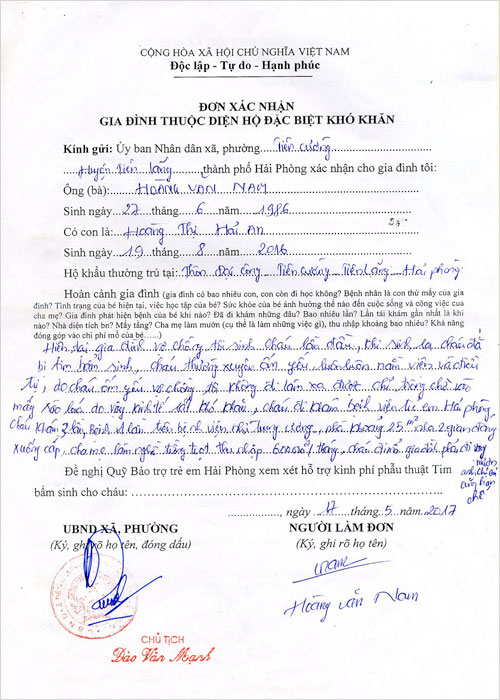 CỘNG HÒA XÃ HỘI CHỦ NGHĨA VIỆT NAM
Độc lập - Tự do - Hạnh phúc
ĐƠN XÁC NHẬN
GIA ĐÌNH THUỘC DIỆN HỘ ĐẶC BIỆT KHÓ KHĂN
Kính gửi: Ủy ban Nhân dân xã, phường....Tiên Cường
Huyện Tiên Lãng.......thành phố Hải Phòng xác nhận cho gia đình tôi:
Ông (bà):......HOÀNG VĂN NAM
Sinh ngày 27 tháng 6 năm 1986
Có con là:...Hoàng Thị Hải An
Sinh ngày 19 tháng 8 năm 2016
Hộ khẩu thường trú tại: Thôn Đại Công Tiên Cường Tiên Lãng Hải phòng
Hoàn cảnh gia đình (gia đình có bao nhiêu con, con còn đi học không? Bệnh nhân là con thứ mấy của gia
đình? Tình trạng của bé hiện tại, việc học tập của bé? Sức khỏe của bé ảnh hưởng thế nào đến cuộc sống và công việc của
cha mẹ? Gia đình phát hiện bệnh của bé khi nào? Đã đi khám những đâu? Bao nhiêu lần? Lần tái khám gần nhất là khi
nào? Nhà diện tích bn? Mấy tầng? Cha mẹ làm mướn (cụ thể là làm những việc gì), thu nhập khoảng bao nhiêu? Khả năng
đóng góp vào chi phí mổ của bé....)
Hiện tại gia đình vợ chồng tôi sinh cháu lần đầu, khi sinh ra cháu đã
bị tim bẩm sinh, cháu thường xuyên ốm yếu, luôn luôn nằm viện và điều
trị, do cháu ốm yếu vợ chồng tôi không đi làm xa được chỉ trông chờ vào
mấy sào lúa do vậy kinh tế rất khó khăn, cháu đi khám bệnh viện trẻ em Hải phòng
cháu khám 2 lần, bệnh 1 lần trên bệnh viện nhi trung ương, nhà khoảng 25 m² nhà 2 gian đang
xuống cấp, cha mẹ làm nghề thu nhập tháng, cháu đi mổ gia đình phải đi vay
mượn
anh chị em
cũng hạn
chế
Đề nghị Quỹ Bảo trợ trẻ em Hải Phòng xem xét hỗ trợ kinh phí phẫu thuật Tim
bẩm sinh cho cháu:
, ngày 17 tháng 5 năm 2017
UBND XÃ, PHƯỜNG NGƯỜI LÀM ĐƠN
(Ký, ghi rõ họ tên, đóng dấu) (Ký, ghi rõ họ tên)
Hoàng văn Nam
CHỦ TỊCH
Đào Văn Mạnh